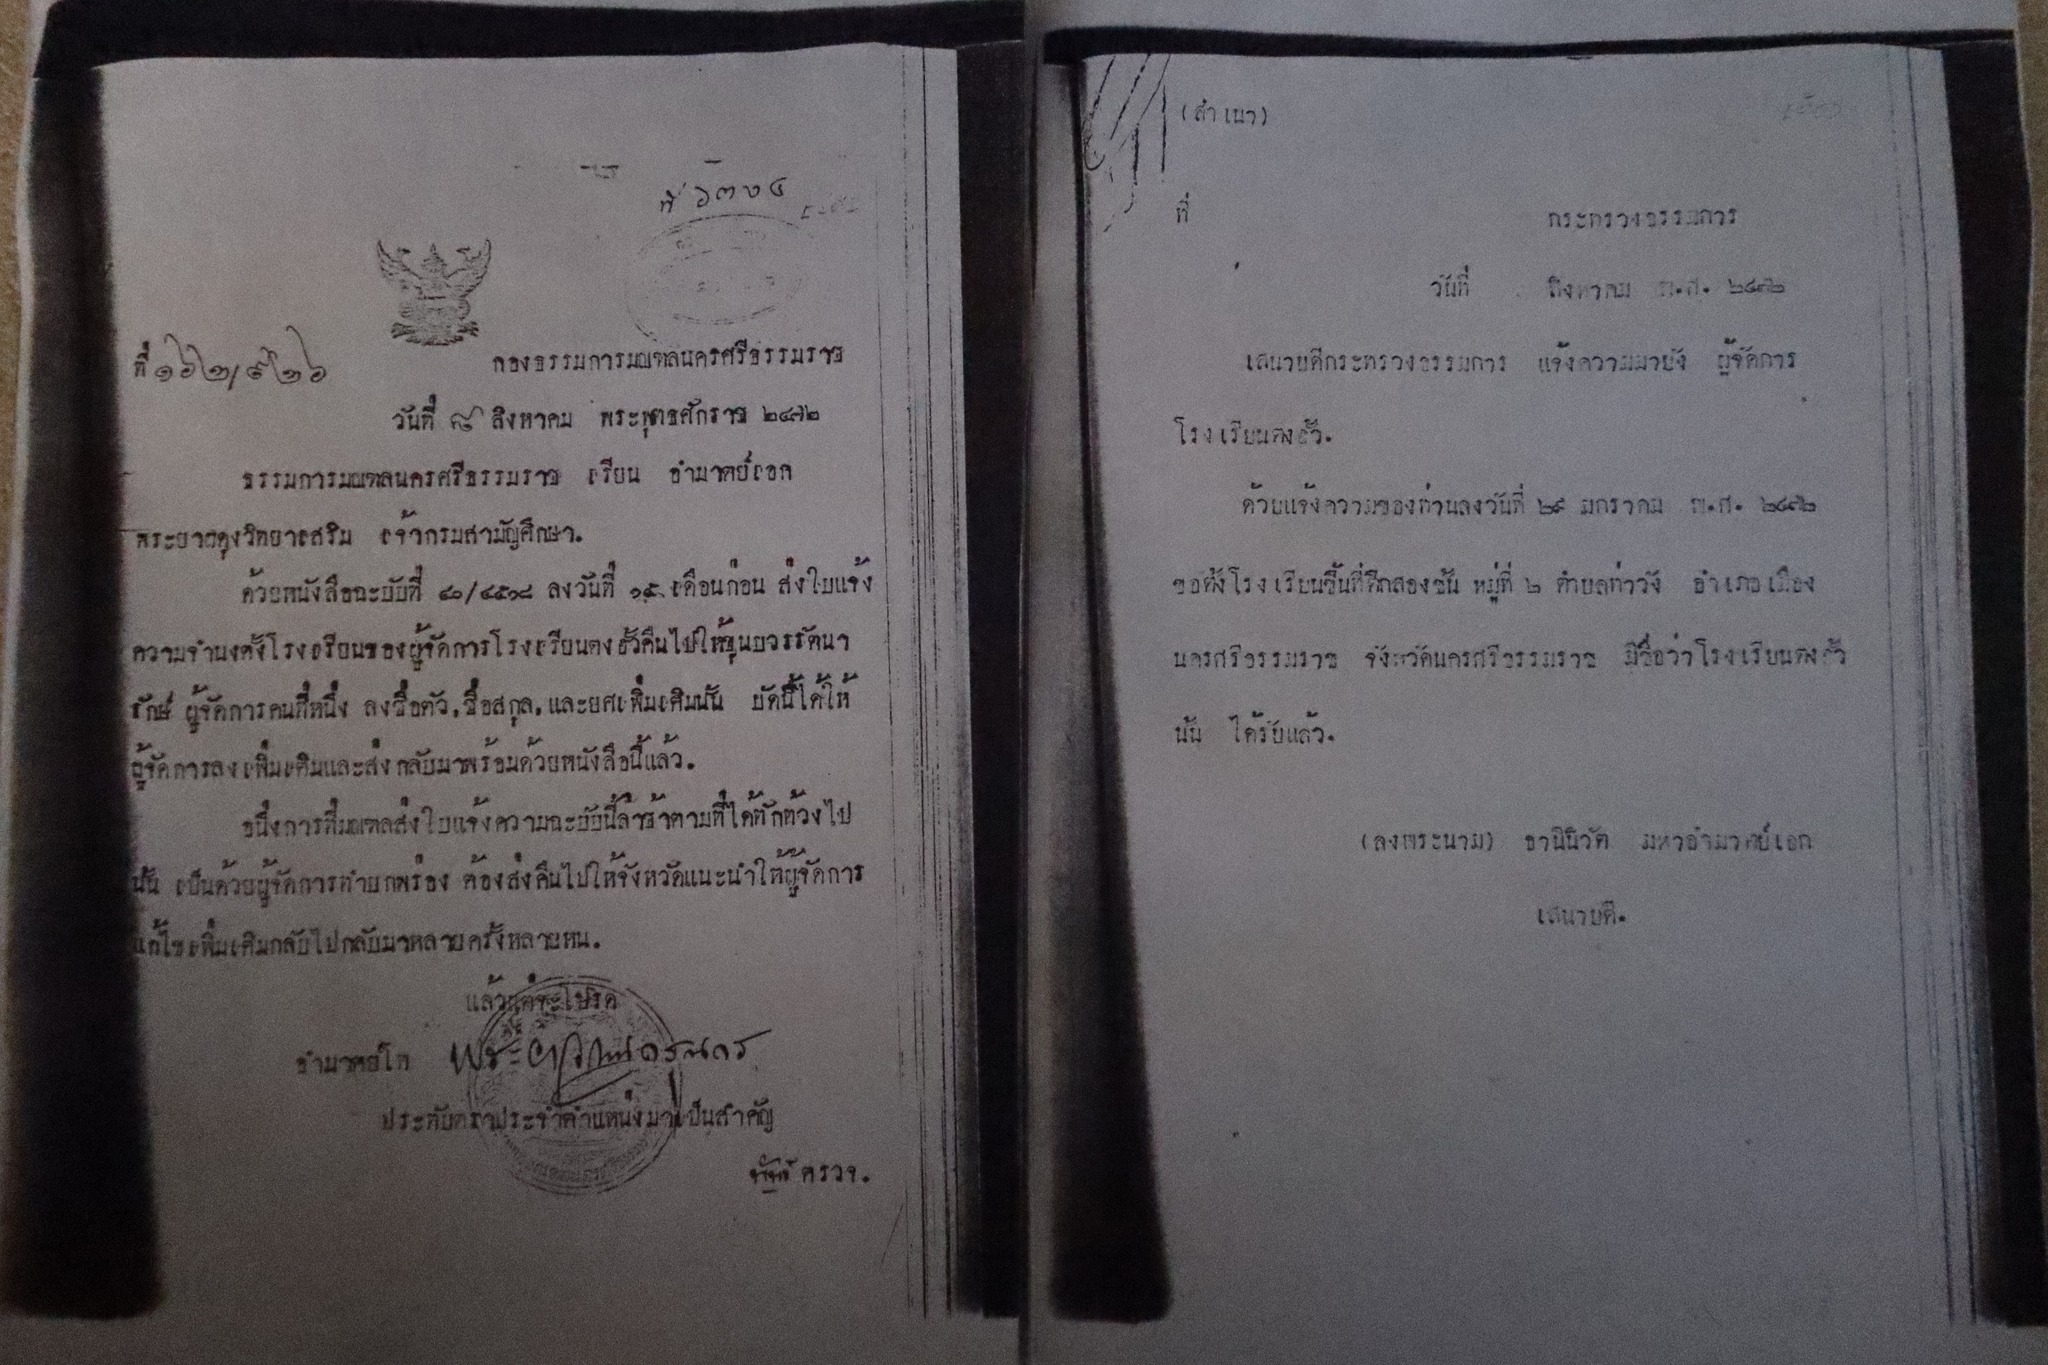 ที่ ๖๓๖๔
ที่ ๑๖๒/๙๒๖
กองธรรมการมณฑลนครศรีธรรมราช
วันที่ ๘ สิงหาคม พระพุทธศักราช ๒๔๗๒
ธรรมการมณฑลนครศรีธรรมราช เรียน อำมาตย์เอก
พระยาผดุงวิทยาเสริม เจ้ากรมสามัญศึกษา.
ด้วยหนังสือฉะบับที่ ๔๐/๔๕๓๘ ลงวันที่ ๑๕ เดือนก่อน ส่งใบแจ้ง
ความจำนงตั้งโรงเรียนของผู้จัดการโรงเรียนตงฮั้วคืนไปให้ขุนบวรรัตนา
รักษ์ ผู้จัดการคนที่หนึ่ง ลงชื่อตัว, ชื่อสกุล, และยศเพิ่มเติมนั้น บัดนี้ได้ให้
ผู้จัดการลงเพิ่มเติมและส่งกลับมาพร้อมด้วยหนังสือนี้แล้ว.
อนึ่งการที่มณฑลส่งใบแจ้งความฉะบับนี้ล่าช้าตามที่ได้ทักท้วงไป
นั้น เป็นด้วยผู้จัดการทำบกพร่อง ต้องส่งคืนไปให้จังหวัดแนะนำให้ผู้จัดการ
แก้ไขเพิ่มเติมกลับไปกลับมาหลายครั้งหลายหน.
แล้วแต่จะโปรด
อำมาตย์โท
ประทับตราประจำตำแหน่งมาเป็นสำคัญ
ตรวจ.
(สำเนา)
ที่ กระทรวงธรรมการ
วันที่ สิงหาคม พ.ศ. ๒๔๗๒
เสนาบดีกระทรวงธรรมการ แจ้งความมายัง ผู้จัดการ
โรงเรียนตงฮั้ว.
ด้วยแจ้งความของท่านลงวันที่ ๒๙ มกราคม พ.ศ. ๒๔๗๒
ขอตั้งโรงเรียนขึ้นที่ตึกสองชั้น หมู่ที่ ๒ ตำบลท่าวัง อำเภอเมือง
นครศรีธรรมราช จังหวัดนครศรีธรรมราช มีชื่อว่าโรงเรียนตงฮั้ว
นั้น ได้รับแล้ว.
(ลงพระนาม) ธานีนิวัต มหาอำมาตย์เอก
เสนาบดี.